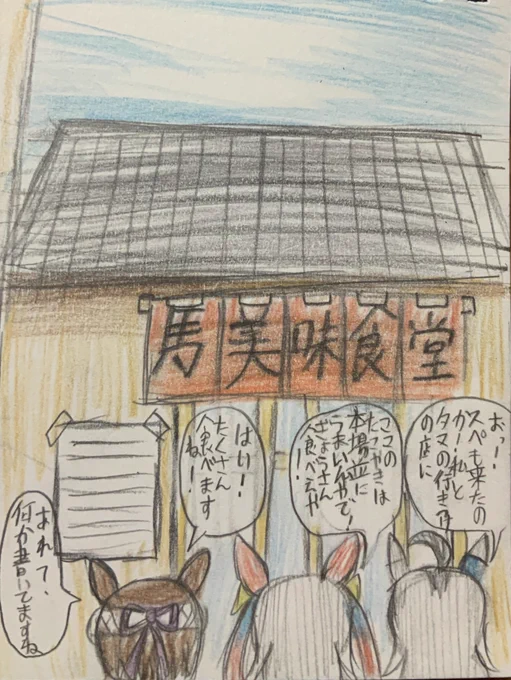 馬美味食堂
おっ!
スペも来たの
かー私と
タマの行き付け
の店に
ココの
たこやきは
本場並に
うまいんやで!
ぎょうさん
食べえや
!
はい!
たくさん
食べます
ね!
あれて、
何か書いてますね